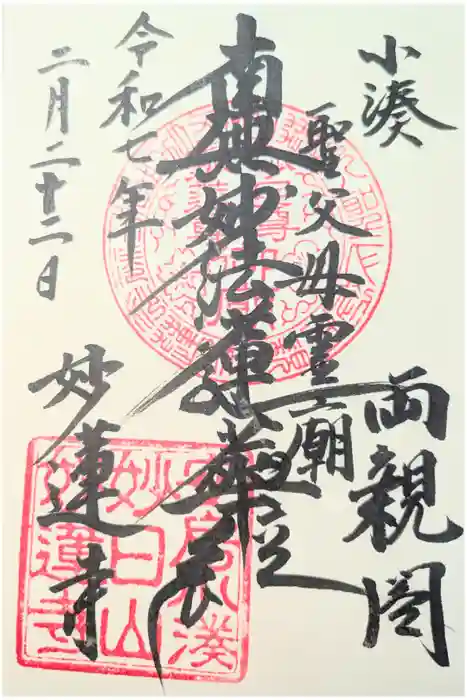 小湊
両親閣
聖父母霊廟
南無妙法蓮華経
令和七年
二月二十二日
妙蓮寺
妙日山
妙蓮寺